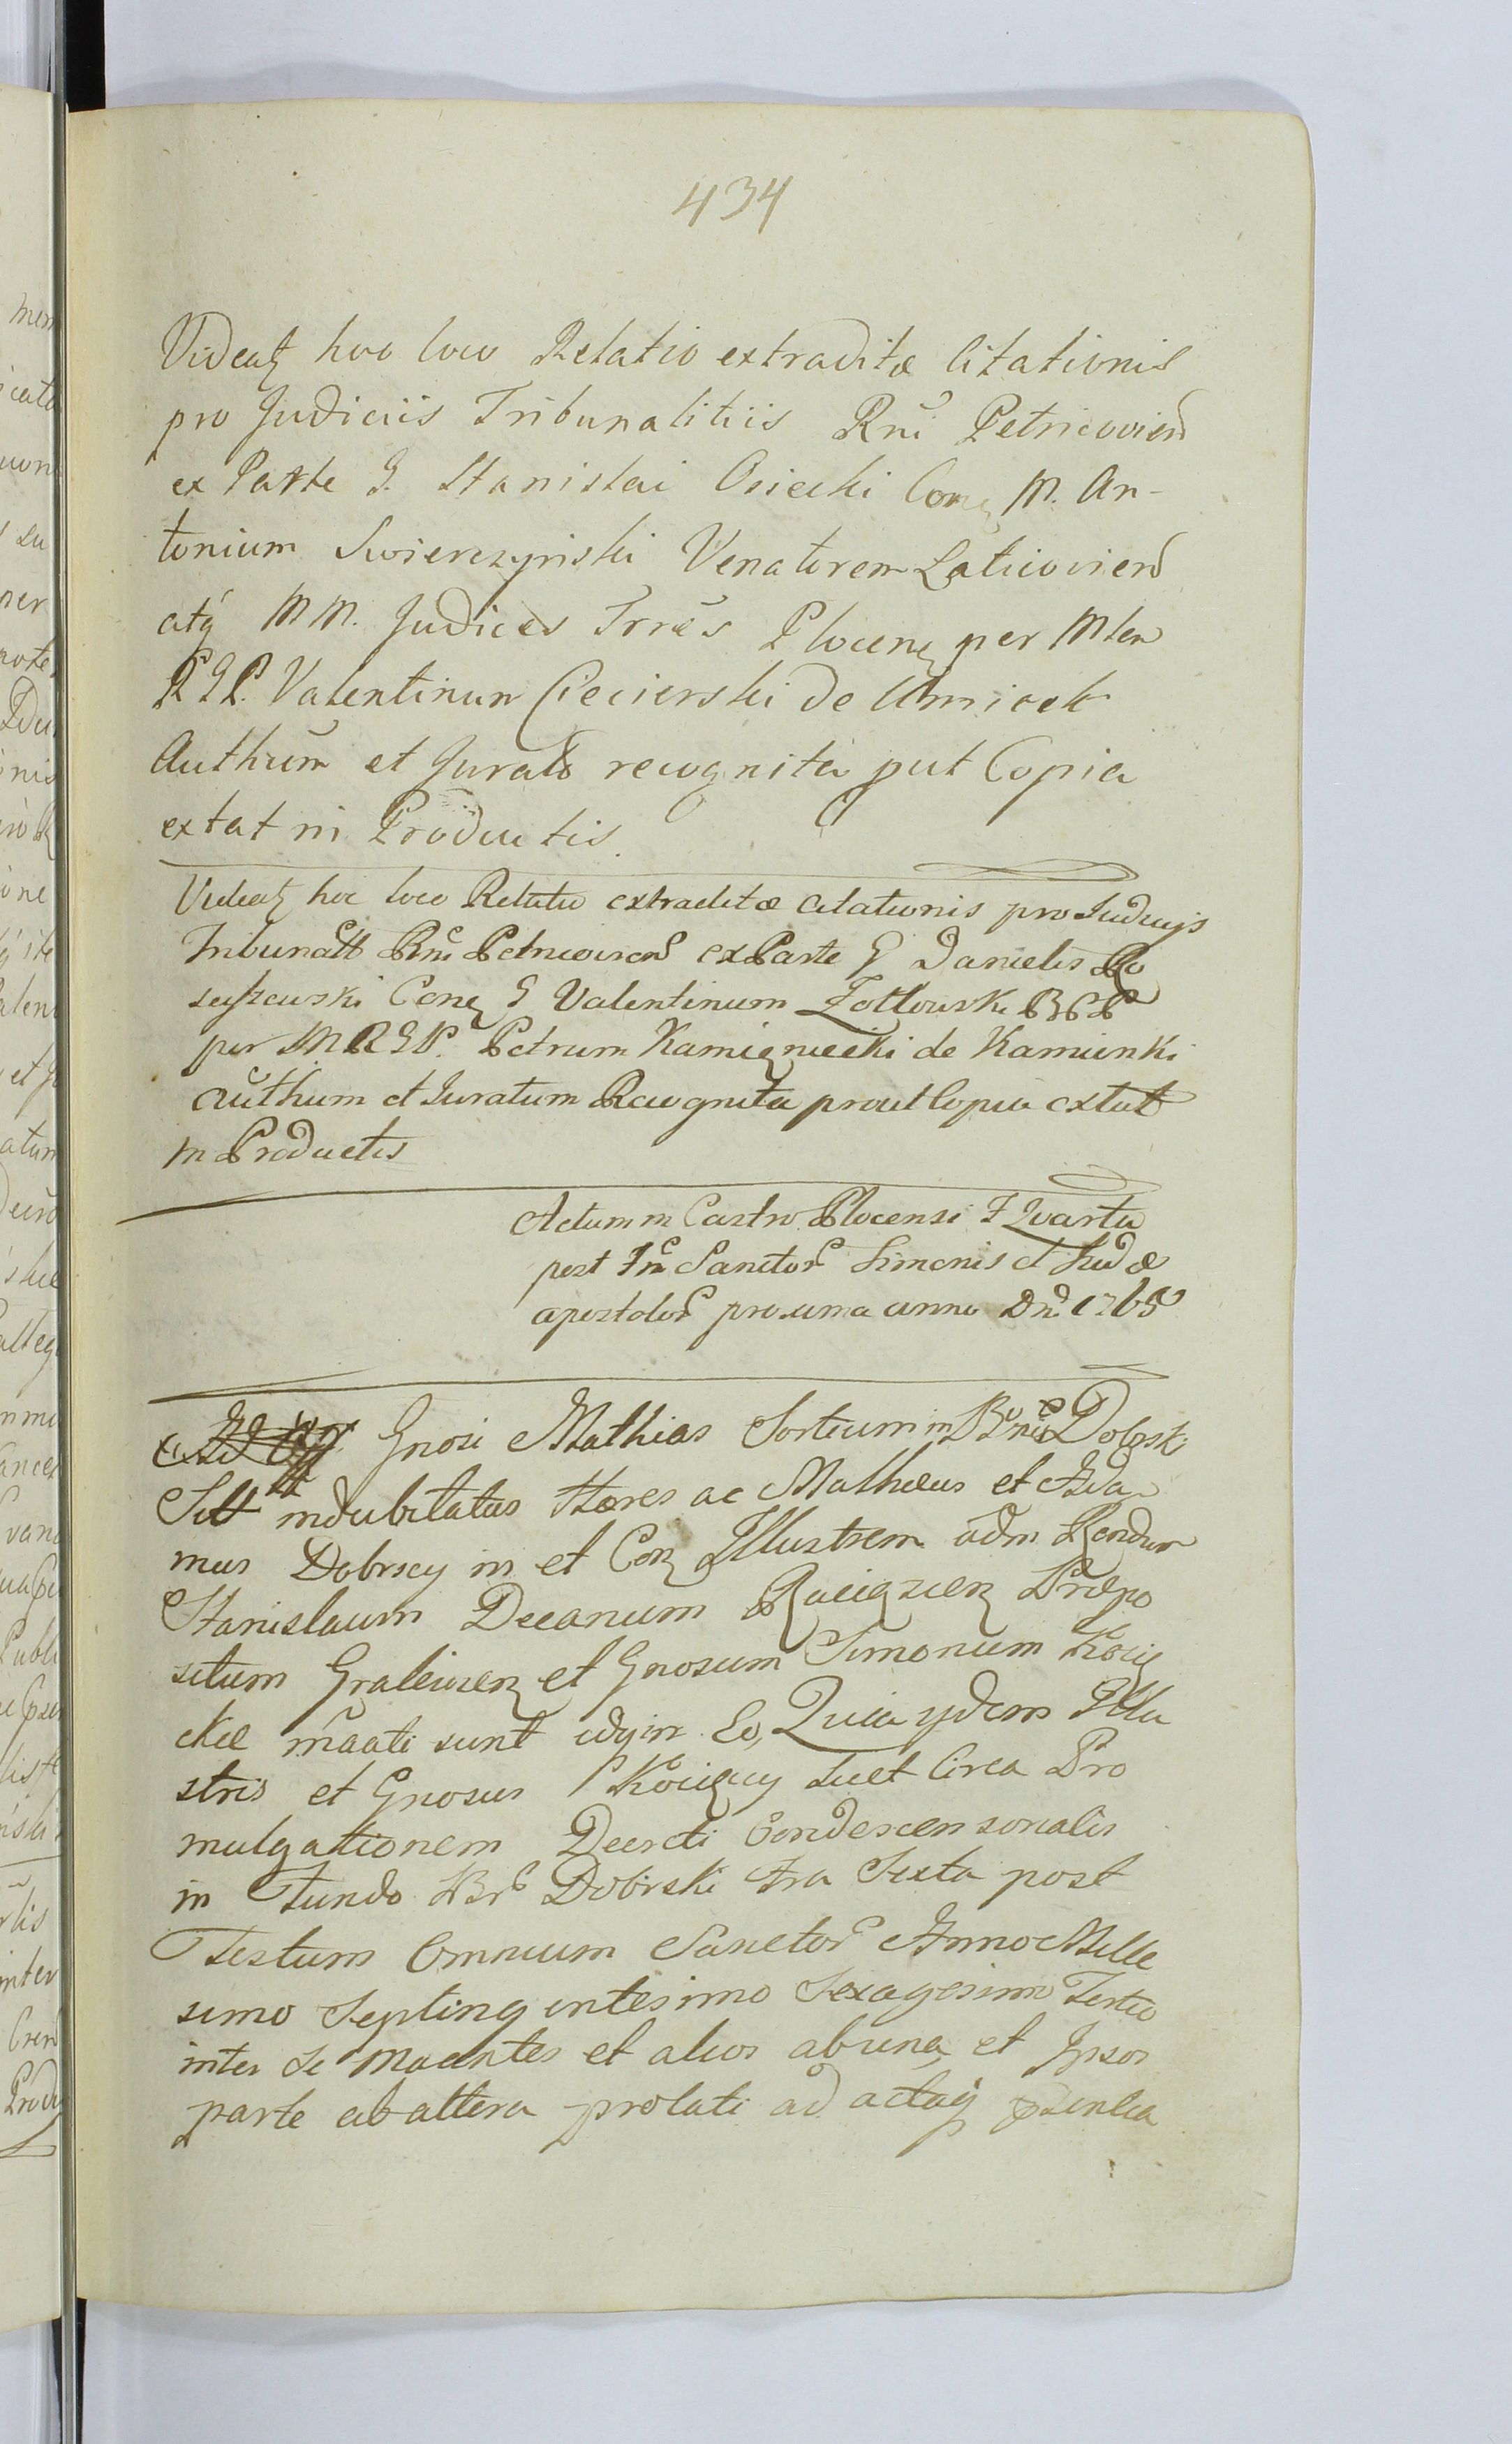 434
Videatz hoc loco Relatio extraditæ Citationis
pro Judiciis Tribunalitiis Rni Petricovien
ex Parte G. Stanislai Osiecki Conz M. An-
tonium Swierczynski Venatorem Laticovien
atq MM. Judices Trres Plocenz per Mten
R G P. Valentinum Ciecierski de
Authum et Jurato recognita put Copia
extat in Productis.
Videatz hoc loco Relatio extraditæ citationis pro Judicijs
Tribunatt Rni Petricovien ex Parte G Danielis Ro
suszewski Conz G Valentinum Zottowski
per M R G P. Petrum Kamięniecki de Kamienki
authum et Juratum Recognita prout Copia extat
in Productis
Actum in Castro Plocensi F Quarta
post Fm Sanctor Simonis et Judæ
apostolor proxima anno Dni 1765
Gnosi Mathias Sortium in Bnis Dobrsk
Sitt indubitatus Hæres ac Matheus et Ada
mus Dobrscy in et Conz Illustrem adm Rendum
Stanislaum Decanum Raciązienz Præpo
situm Gralewienz et Gnosum Simonum Kocię
ckie maati sunt idqin Eo, Quia ydem Illu
stris et Gnosus Kocięccy Licet Circa Pro
mulgationem Decreti Condescensionalis
in Fundo Bnr Dobrski Fra Sexta post
Festum Omnium Sanctor Anno Mille
simo Septing entesimo Sexagesimo Tertio
inter Se Maantes et alios ab una et Ipsos
parte ab altera prolati ad actaq psentia